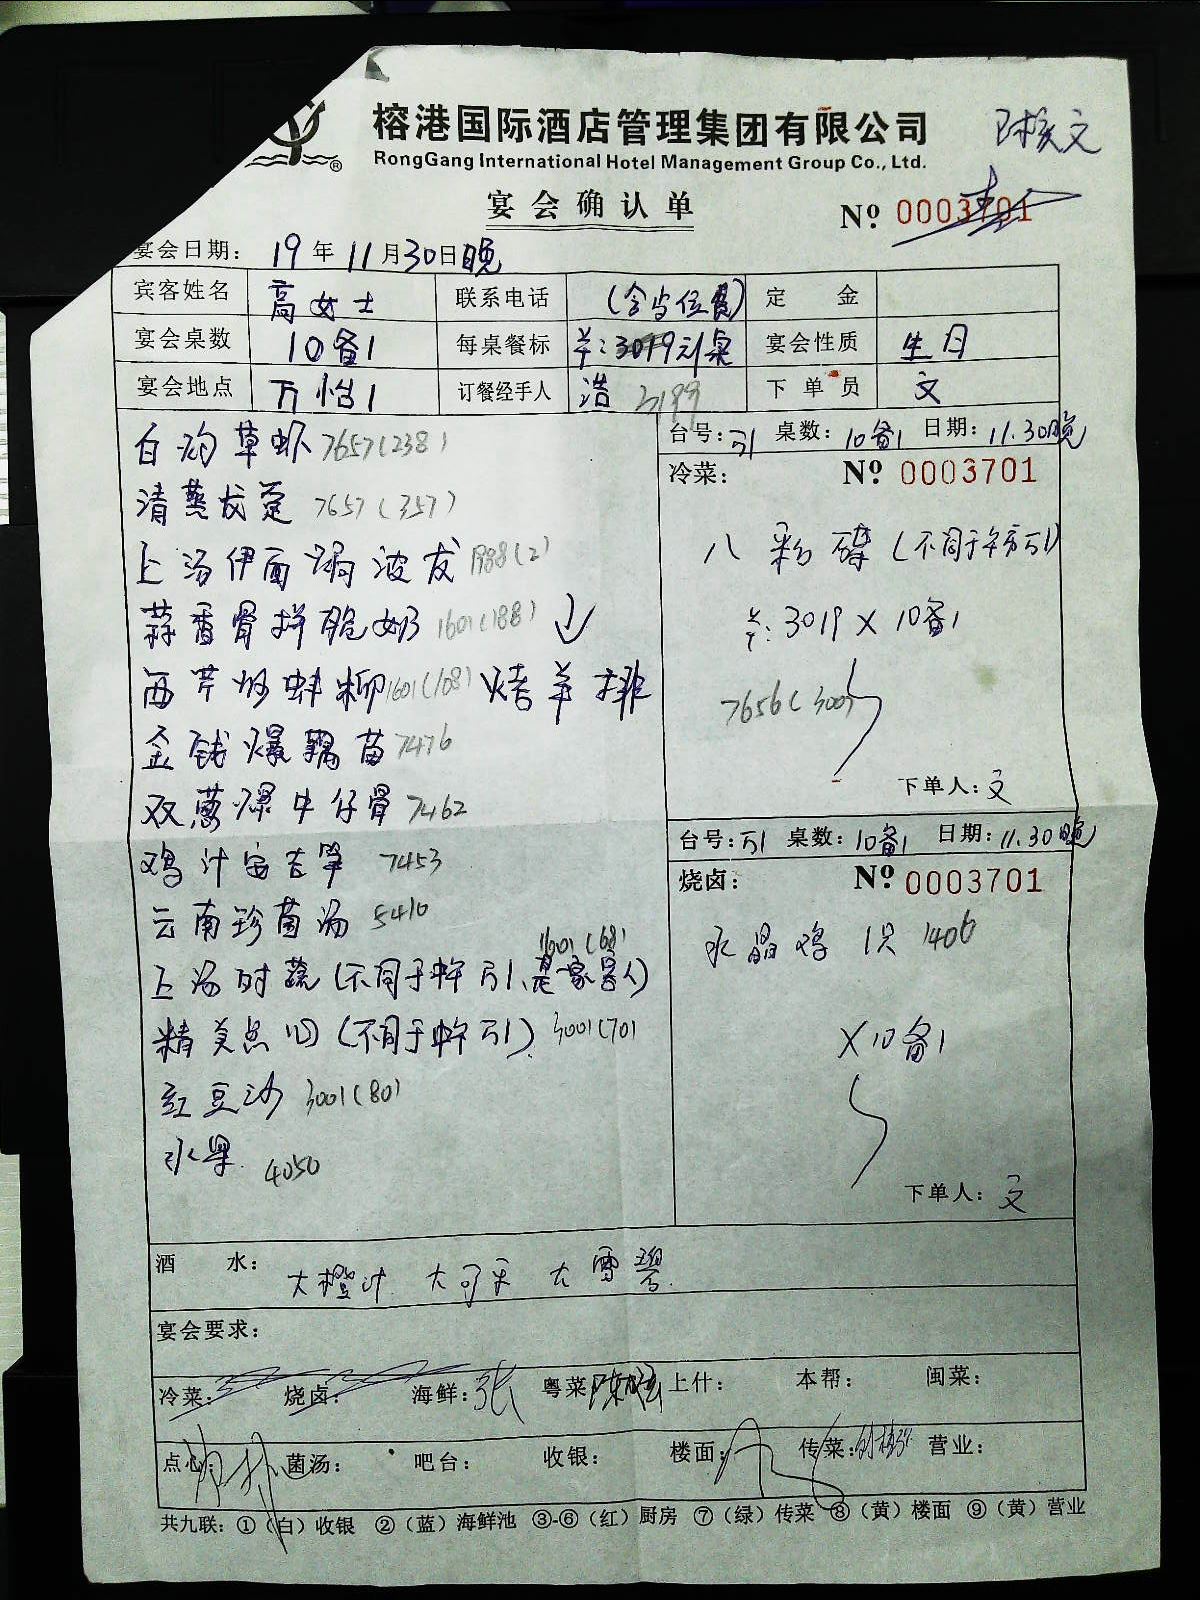 榕港国际酒店管理集团有限公司
RongGang International Hotel Management Group Co., Ltd.
宴会确认单
№ 0003701
宴会日期： 19年11月30日晚
宾客姓名 高女士 联系电话 定金
宴会桌数 10备1 每桌餐标 羊:3019元/桌 宴会性质 生日
宴会地点 万怡1 订餐经手人 浩 3199 下单员 文
台号：万1 桌数：10备1 日期：11.30晚
冷菜： № 0003701
八彩碟
3019 X 10备1
7656(300)
下单人：文
台号：万1 桌数：10备1 日期：11.30晚
烧卤： № 0003701
水晶鸡 1只 1406
X10备1
下单人：文
白灼草虾 7657(238)
清蒸龙趸 7657(357)
上汤伊面焗波龙 1988(2)
蒜香骨拼脆奶 1601(188)
西芹炒蚌柳 1601(108) 烤羊排
金钱爆藕苗 7476
双葱爆牛仔骨 7462
鸡汁安吉笋 7453
云南珍菌汤 5410
1601(68)
上汤时蔬(不同于中午万1、是一家客人)
精美点心(不同于中午万1) 3001(70)
红豆沙 3001(80)
水果 4050
酒水： 大橙汁 大可乐 大雪碧
宴会要求：
冷菜： 烧卤： 海鲜：张 粤菜： 上什： 本帮： 闽菜：
点心： 菌汤： 吧台： 收银： 楼面： 传菜： 营业：
共九联：①（白）收银 ②（蓝）海鲜池 ③-⑥（红）厨房 ⑦（绿）传菜 ⑧（黄）楼面 ⑨（黄）营业